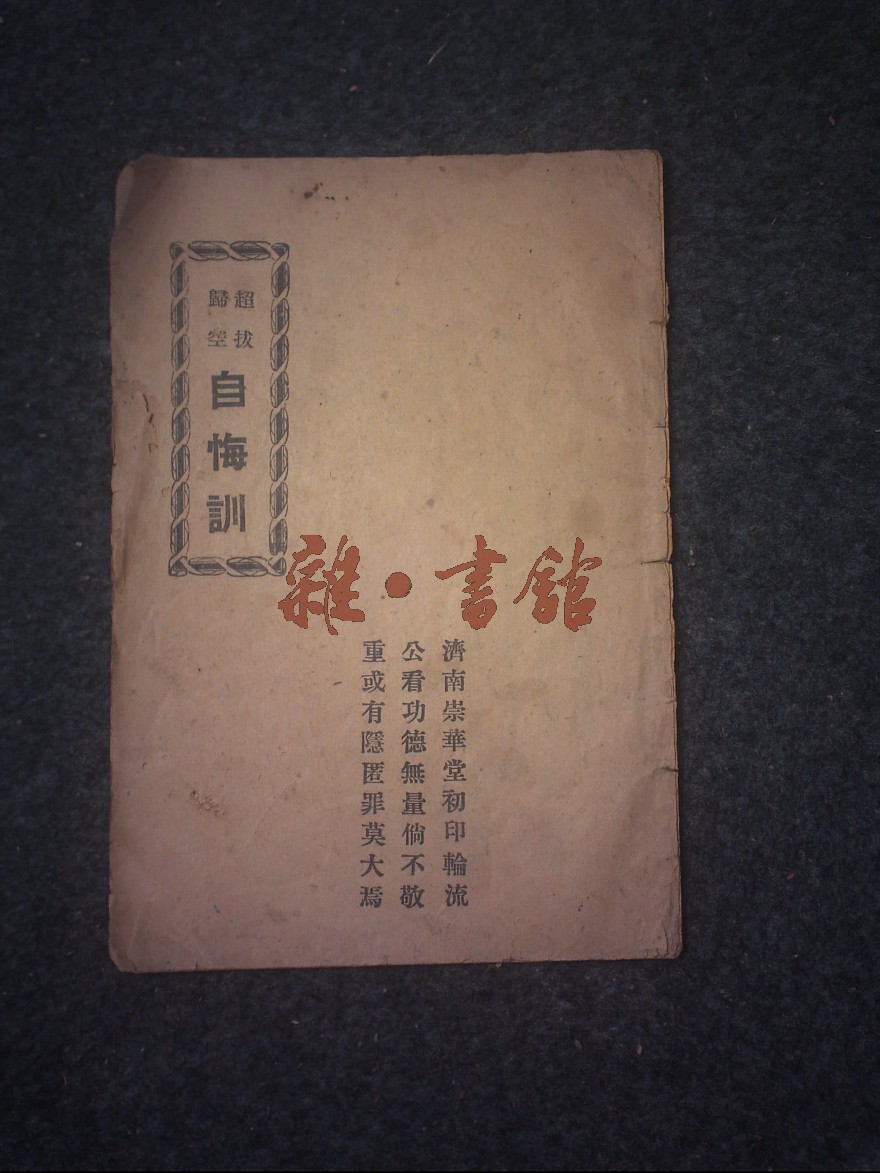 超拔
歸空
自悔訓
濟南崇華堂初印輪流
公看功德無量倘不敬
重或有隱匿罪莫大焉
雜·書館